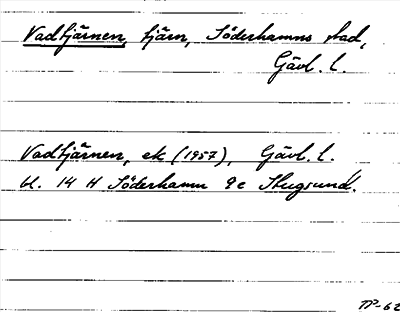 Vadtjärnen, tjärn, Söderhamns stad,
Gävl. l.
Vadtjärnen, ek (1957), Gävl. l.
bl. 14 H Söderhamn 9c Stugsund.
TP-62